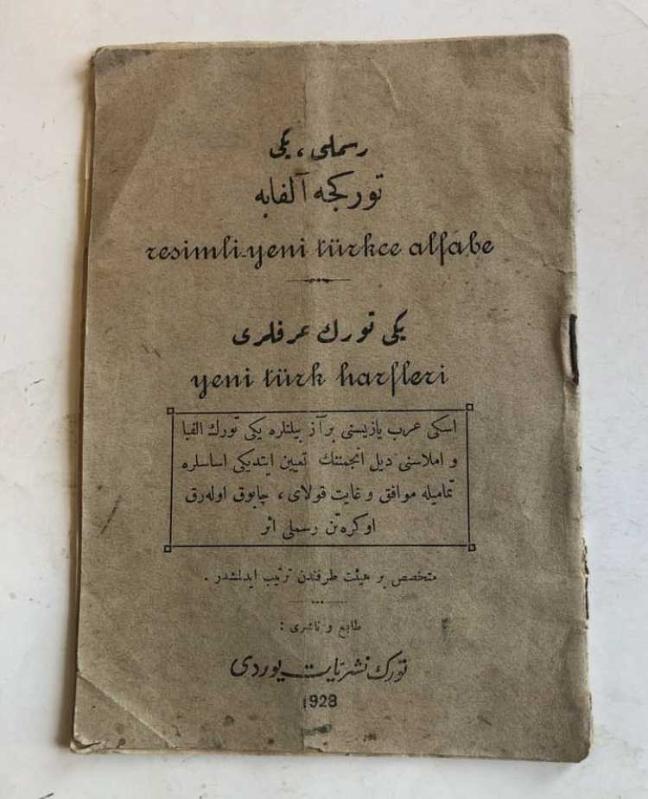 رسملی ، یکی
تورکجه آلفابه
resimli-yeni türkce alfabe
یکی تورك حرفلری
yeni türk harfleri
اسکی عرب یازیسنی بر آز بیلنلره یکی تورك الفبا
و املاسنی دیل انجمننك تعیین ایتدیکی اساسلره
تمامیله موافق و غایت قولای ، چابوق اوله‌رق
اوکره‌تن رسملی اثر
متخصص بر هیئت طرفندن ترتیب ایدلمشدر .
طابع و ناشری :
تورك نشریات یوردی
1928